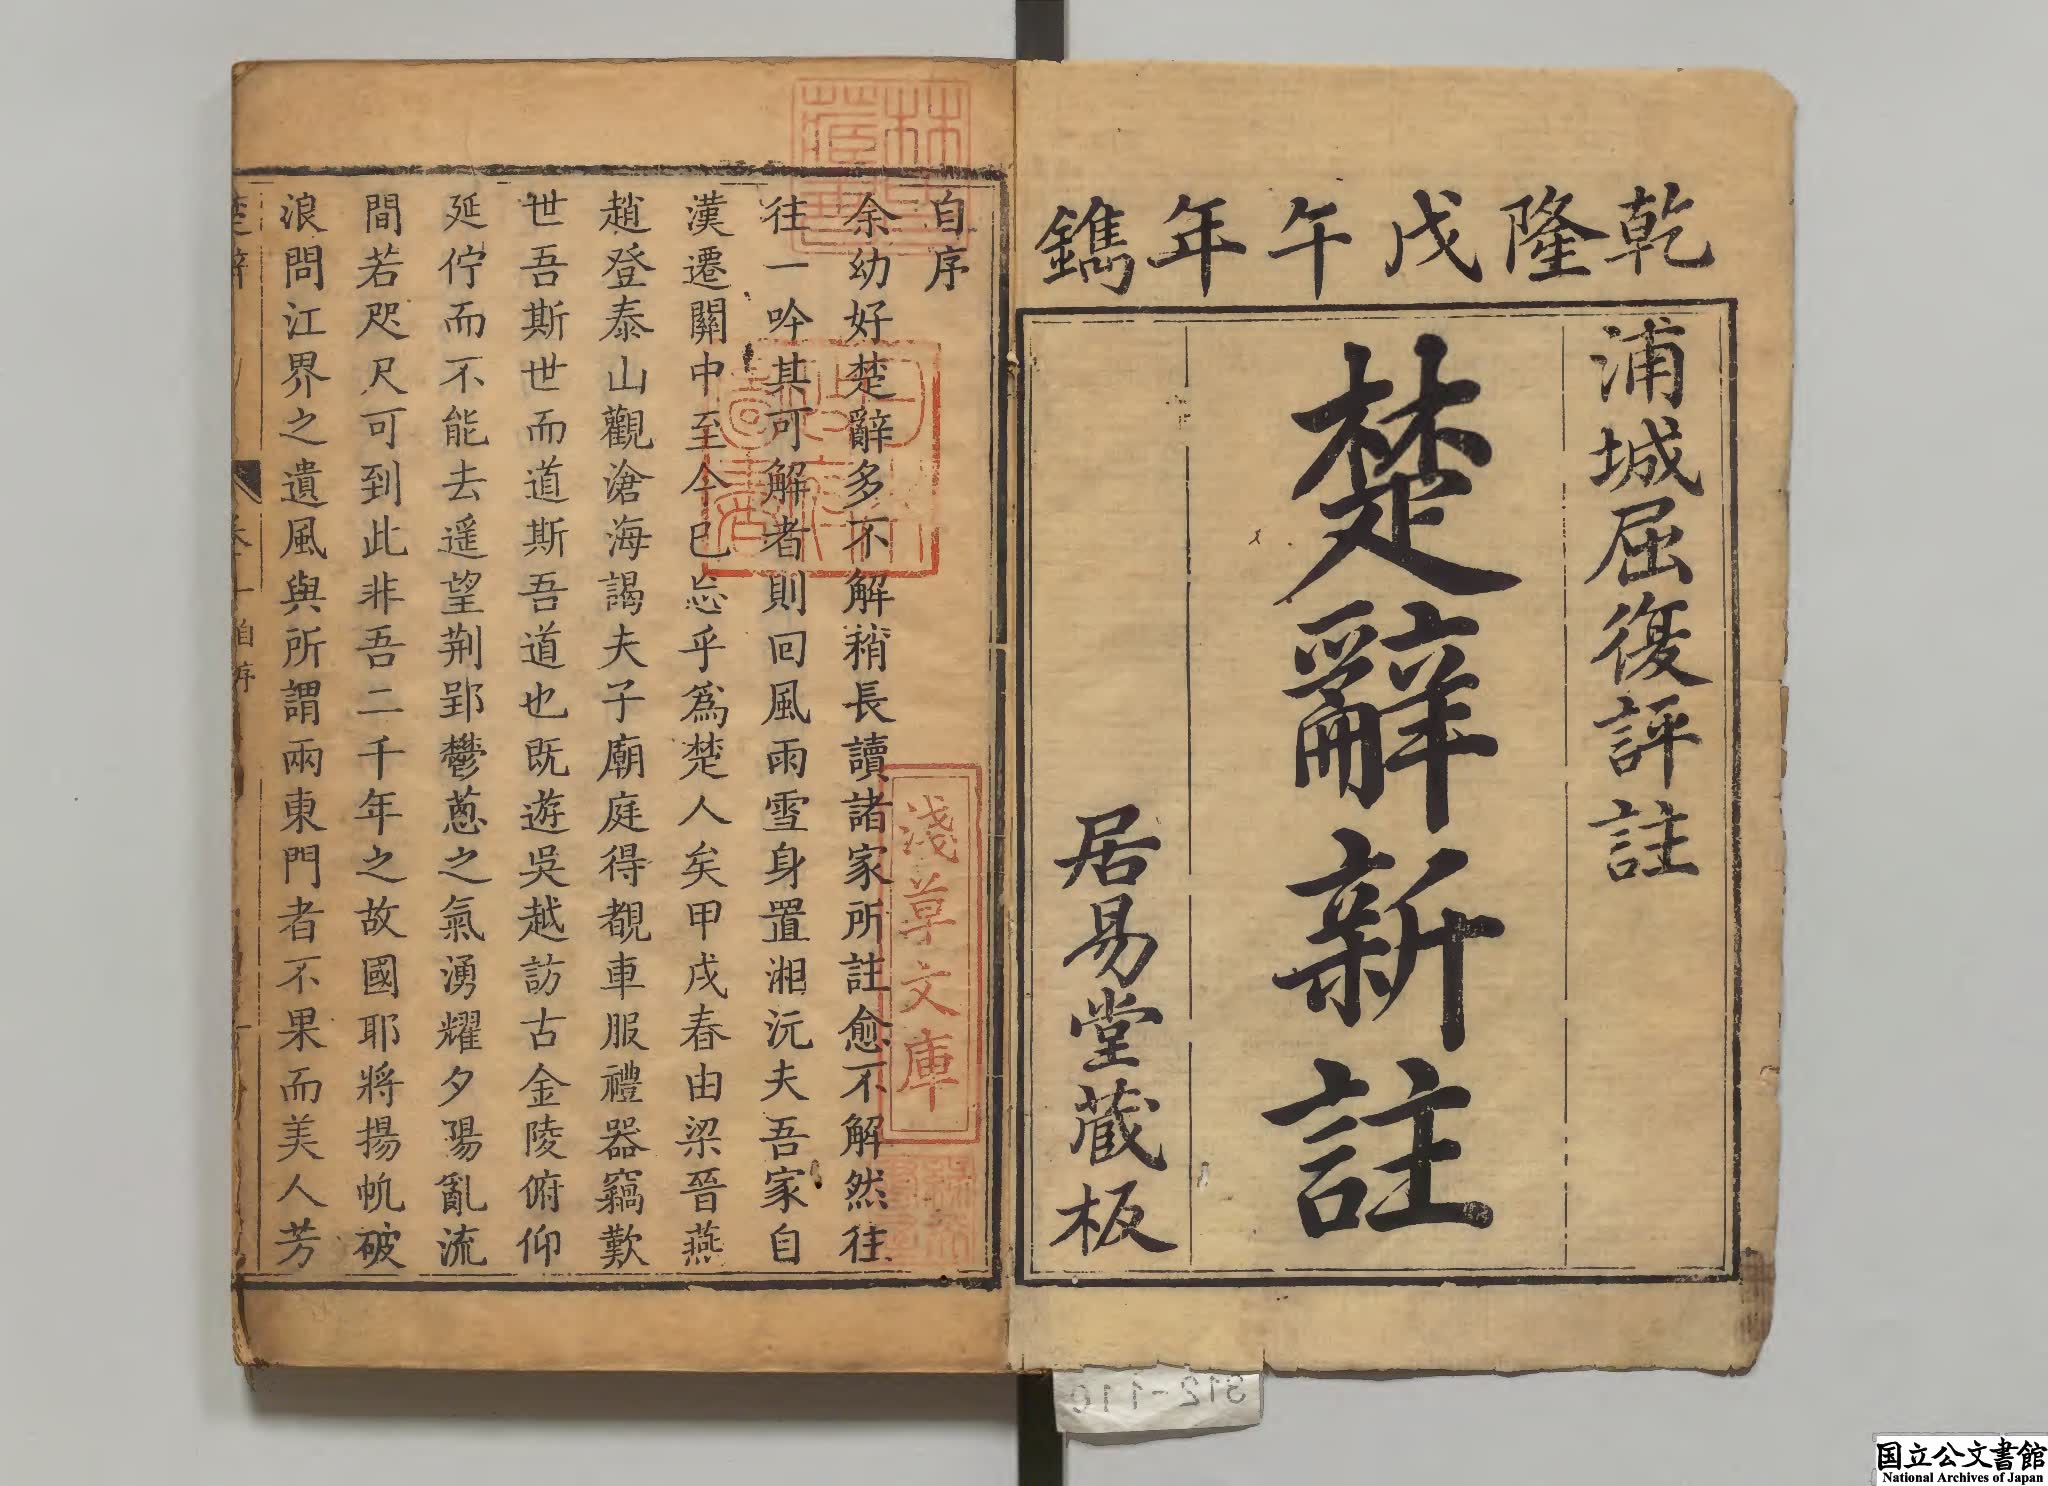 乾隆戊午年鐫
浦城屈復評註
楚辭新註
居易堂蔵板
自序
余幼好楚辭多不解稍長讀諸家所註愈不解然往
往一吟其可解者則回風雨雪身置湘沅夫吾家自
漢遷關中至今已忘乎為楚人矣甲戌春由梁晉燕
趙登泰山觀滄海謁夫子廟庭得覩車服禮器竊歎
世吾斯世而道斯吾道也既遊吳越訪古金陵俯仰
延佇而不能去遥望荆郢鬱蔥之氣湧耀夕陽亂流
間若咫尺可到此非吾二千年之故國耶將揚帆破
浪問江界之遺風與所謂兩東門者不果而美人芳
楚辭
自序
淺草文庫
312-110
国立公文書館
National Archives of Japan